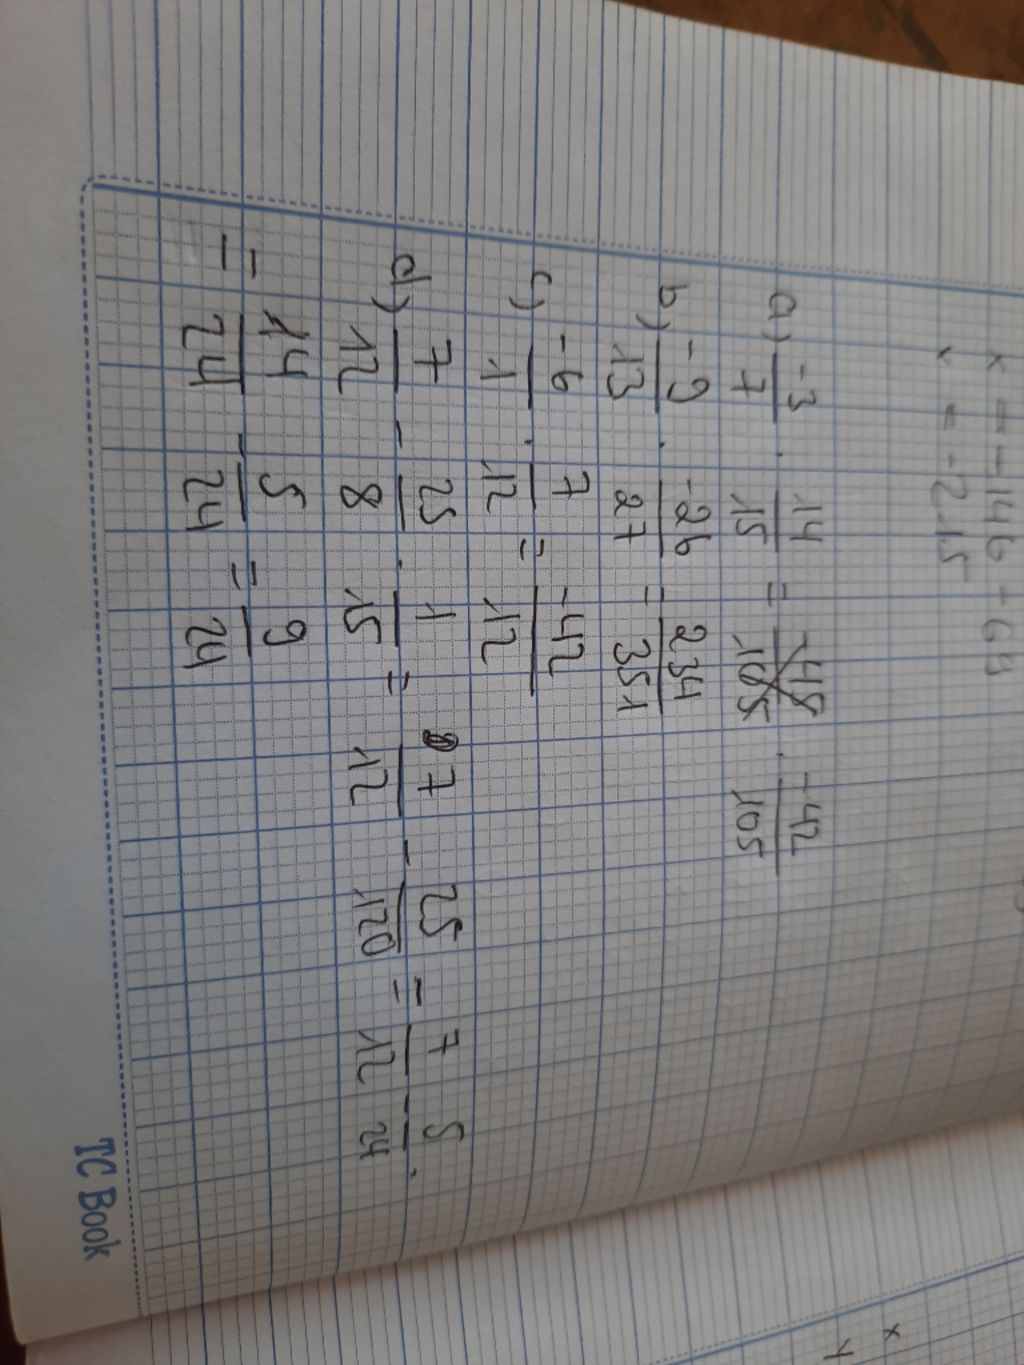 x = -146 - 69
x = -215
a) -3/7 . 14/15 = . -42/105
b) -9/13 . -26/27 = 234/351
c) -6/1 . 7/12 = -42/12
d) 7/12 - 25/8 . 1/15 = 7/12 - 25/120 = 7/12 - 5/24 .
= 14/24 - 5/24 = 9/24
TC Book
x